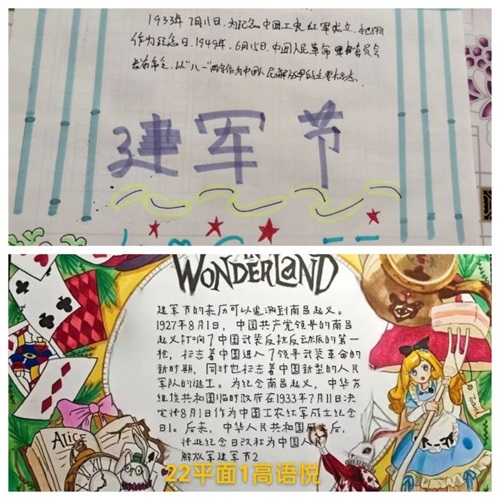 1933年7月11日,为纪念中国工农红军成立,
作为纪念日,1949年6月15日,中国人民革命军事委员会
建军节
WONDERLAND
建军节的来历可以追溯到南昌起义。
1927年8月1日,中国共产党领导的南昌
起义打响了中国武装反抗反动派的第一
枪,标志着中国进入了领导武装革命的
新时期,同时也标志着中国新型的人民
军队的诞生。为纪念南昌起义,中华苏
维埃共和国临时政府在1933年7月11日决
定将8月1日作为中国工农红军成立纪念
日。后来,中华人民共和国成立后,
将此纪念日改称为中国人民
解放军建军节2
ALICE
22平面1高语悦